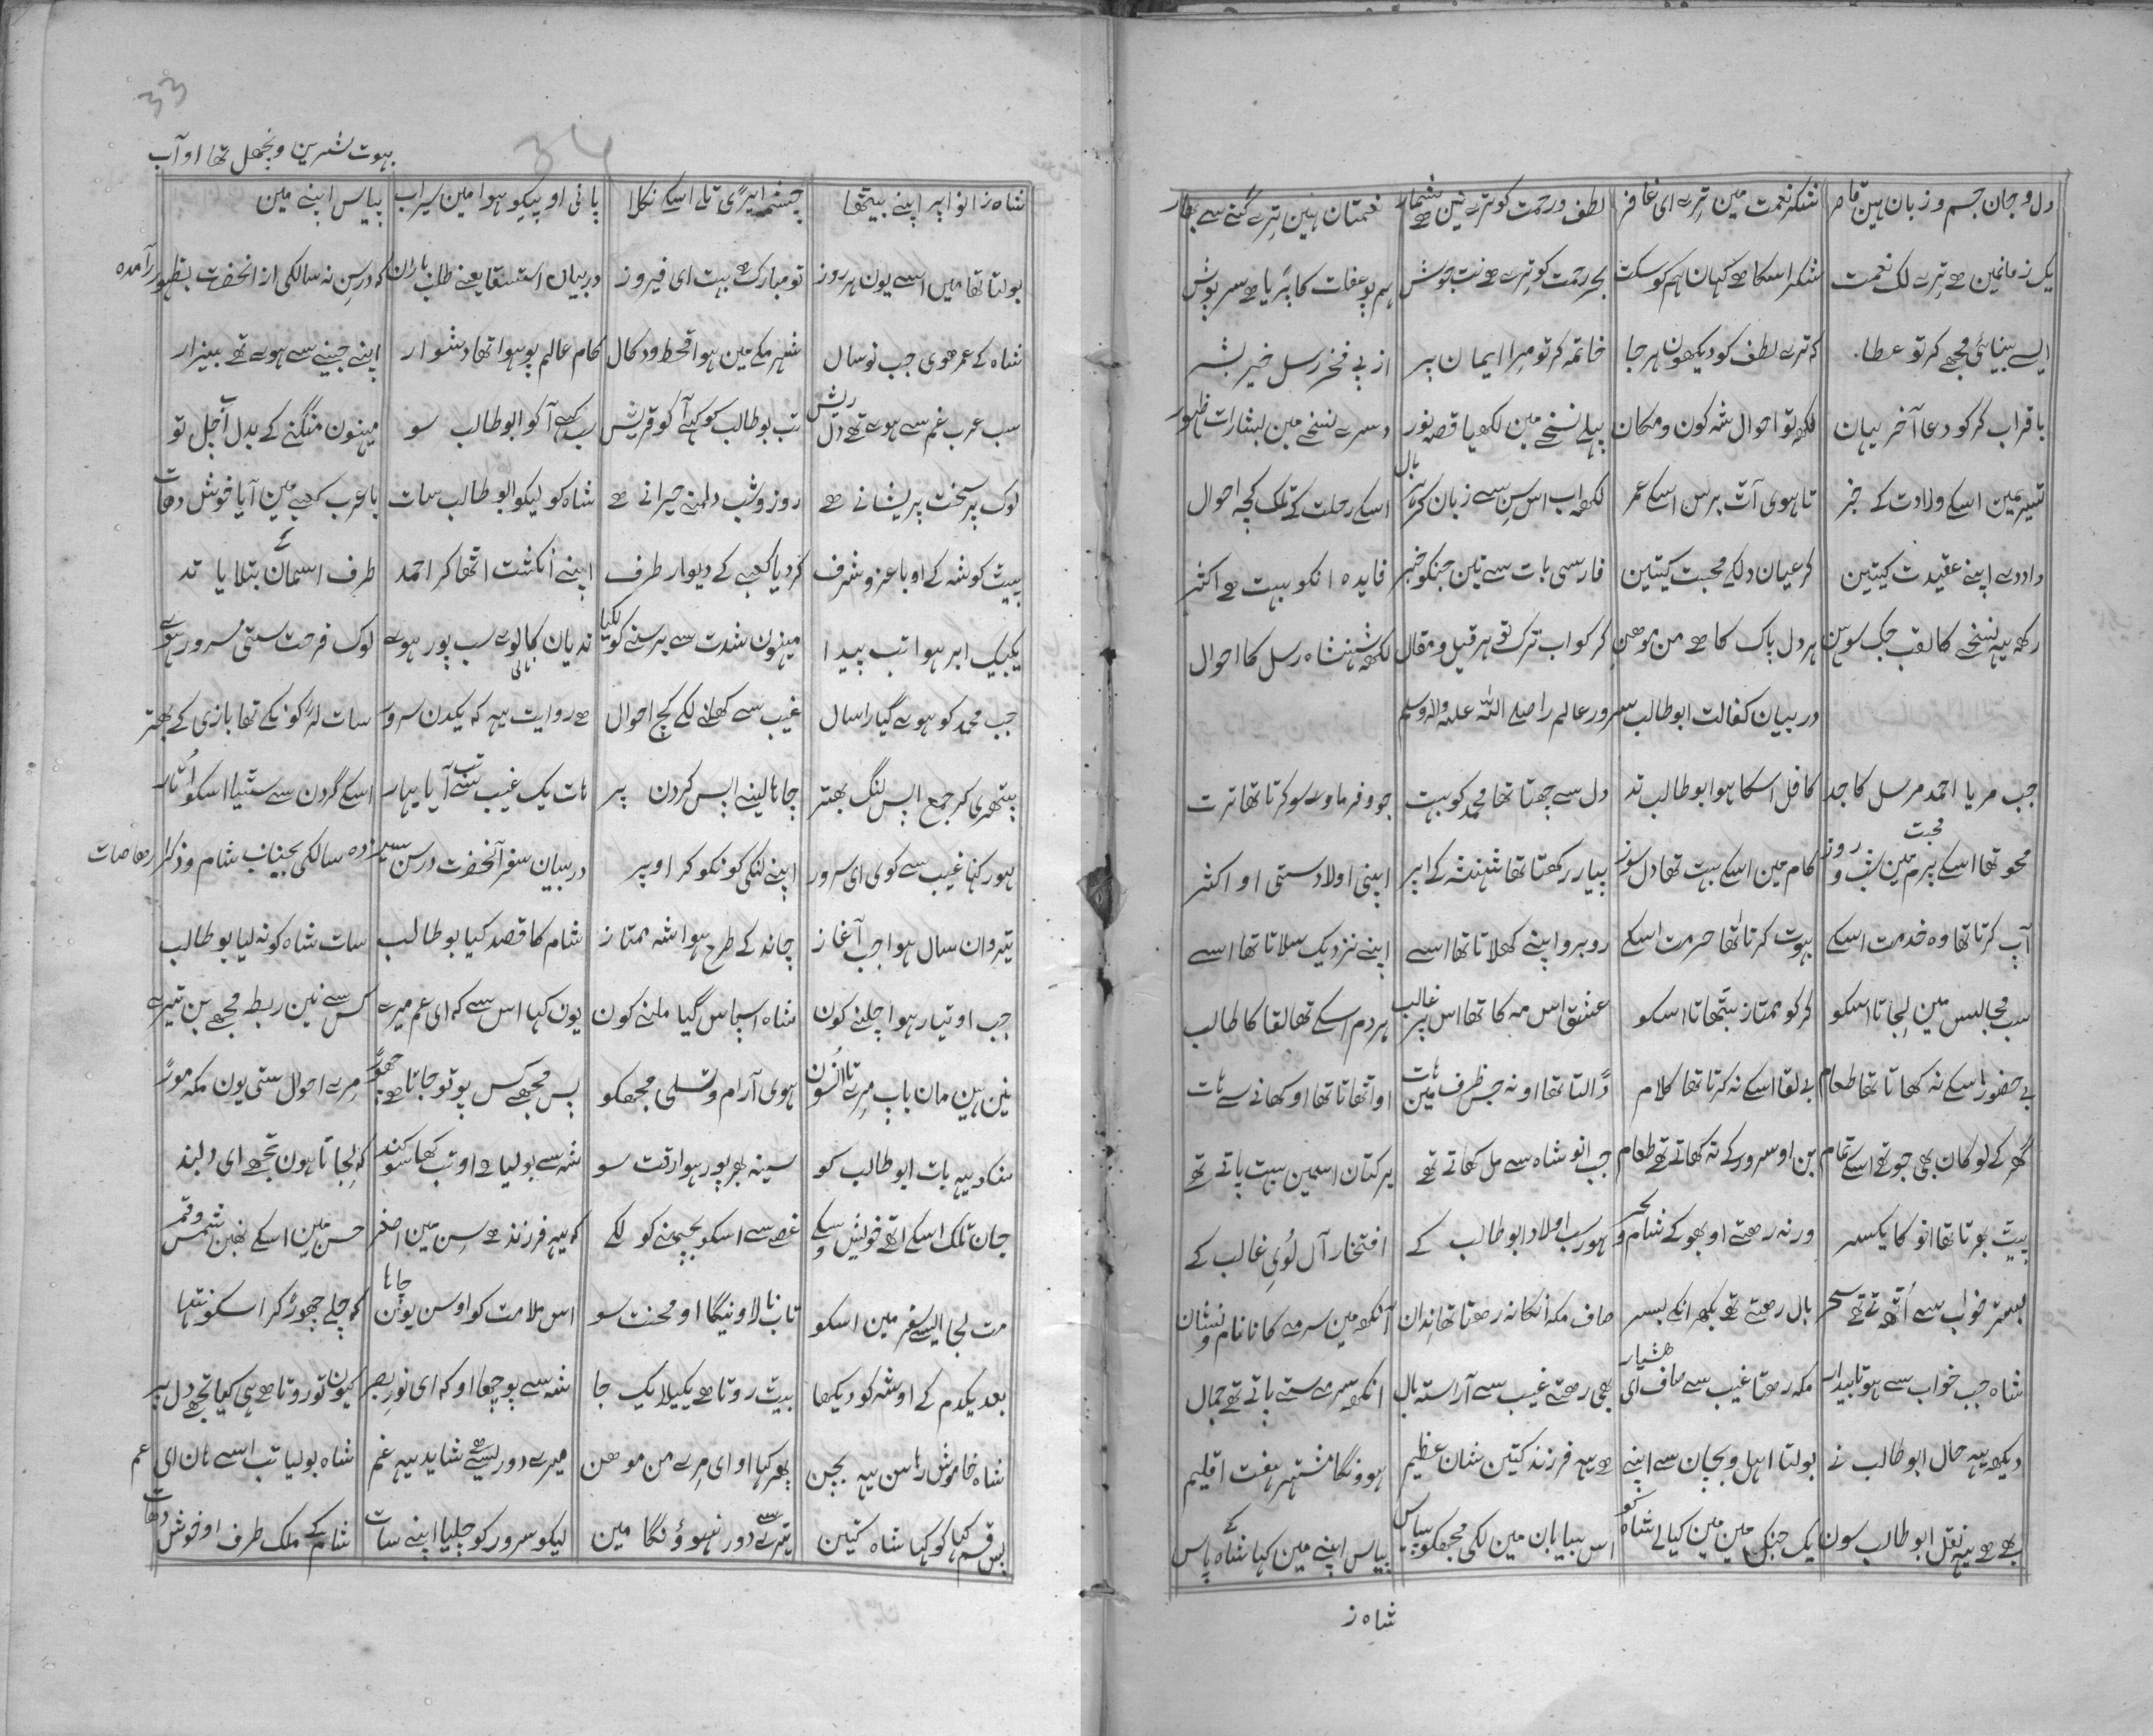 دل و جان جسم و زبان ہین قاصر شکر نعمت مین ترے ای غافر لطف و رحمت کو ترے نین ہے شمار نعمتان ہین ترے گنے سے بہار
یک زمانمین ہے ترے لک نعمت شکر اسکا ہے کہان ہم کو سکت بحر رحمت کو ترے ہے نت جوش ہم پو عفات کا پڑیا ہے سرپوش
ایسے بینائی مجھے کر تو عطا کہ ترے لطف کو دیکھون ہر جا خاتمہ کر تو مرا ایمان پر از پی فخر رسل خیر بشر
باقر اب کر کو دعا آخر یہان لکھ تو احوال شہ کون و مکان پہلے نسخے مین لکھیا قصہ نور دسرے نسخے مین بشارات ظہور
تیسرے مین اسکے ولادت کے خبر تا ہوی آٹ برس اسکے عمر لکھ اب اس سن سے زبان کر کر بال اسکے رحلت کے تلک کچہ احوال
داد دے اپنے عقیدت کیتین کر عیان دلکے محبت کیتین فارسی بات سے نین جنکو خبر فایدہ انکو بہت ہے اکثر
رکھ یہہ نسخے کا لقب جک سوہن ہر دل پاک کا ہے من موہن کر کو اب ترک تو ہر قیل و مقال لکھ شہنشاہ رسل کا احوال
در بیان کفالت ابو طالب سرور عالم را صلے اللہ علیہ وآلہ وسلم
جب مریا احمد مرسل کا جد کافل اسکا ہوا ابو طالب تد دل سے چھتا تھا محمد کو بہت جو وفرماوے سو کرتا تھا ترت
محو تھا اسکے پرم مین شب و روز محبت کام مین اسکے بہت تھا دل سوز پیار رکھتا تھا شہنشہ کے اپر اپنی اولاد ستی او اکثر
آپ کرتا تھا وہ خدمت اسکے بہوت کرتا تھا حرمت اسکے روبرو اپنے کھلاتا تھا اسے اپنے نزدیک سلاتا تھا اسے
سب مجالس مین لیجاتا اسکو کر کو ممتاز بتھاتا اسکو عشق اس مہ کا تھا اس پر غالب ہر دم اسکے تھا لقا کا طالب
بے حضور اسکے نہ کھاتا تھا طعام بے لقا اسکے نہ کرتا تھا کلام ڈالتا تھا او نہ جس ظرف مین ہات او اتھاتا تھا او کھانی سے ہات
گھر کے لوکان بھی جو تھے اسکے تمام بن او سرور کے نہ کھاتے تھے طعام جب انو شاہ سے مل کھاتے تھے برکتان اسمین بہت پاتے تھے
پیٹ بھرتا تھا انو کا یکسر ورنہ رہتے او بھوکے شام و سحر ہور سب اولاد ابو طالب کے افتخار آل لوی غالب کے
بستر خواب سے اُٹھتے تھے سحر بال رہتے تھے بکھر انکے بسر صاف مکہ انکا نہ رہتا تھا ندان آنکھ مین سرمے کا نا نام و نشان
شاہ جب خواب سے ہوتا بیدار مکہ رہتا غیب سے صاف ای ہشیار بھی رہتے غیب سے آراستہ بال انکھ سرمے ستے پاتے تھے جمال
دیکھ یہہ حال ابو طالب نے بولتا اہل و بچان سے اپنے ہے یہہ فرزند کتین شان عظیم ہوونگا مشتہر ہفت اقلیم
بھے ہے یہہ نقل ابو طالب سون یک جنگل مین مین کیا لے شاہ کو اس بیابان مین لکی مجھکو پیاس پیاس اپنے مین کہا شاہ کے پاس
شاہ ز
33
34
بہوت شیرین و نچھل تھا او آب
شاہ زانو اپر اپنے بیتھا چشمہ ایڑی تلے اسکے نکلا پانی او پیکو ہوا مین سیراب پیاس اپنے مین
بولتا تھا مین اسے یون ہر روز تو مبارک ہے بہت ای فیروز در بیان استسقا یعنے طلب باران کہ در سن نہ سالکی از انحضرت بظہور آمدہ
شاہ کے عمر ہوی جب نو سال شہر مکے مین ہوا قحط و دکال کام عالم پو ہوا تھا دشوار اپنے جینے سے ہوے تھے بیزار
سب عرب غم سے ہوے تھے دل ریش تب بو طالب کو کہے آ کو قریش کہے آ کو ابو طالب سو مینہون منگنے کے بدل آ چل تو
لوک پر سخت پریشانے ہے روز و شب دلمنے حیرانے ہے شاہ کو لیکو ابو طالب سات با عرب کعبے مین آیا خوش دھات
پیٹ کو شہ کے او با عز و شرف کر دیا کعبے کے دیوار طرف اپنے انکشت اتھا کر احمد طرف اسمان کے بتلایا تد
یکبیک ابر ہوا تب پیدا مینہون شدت سے برسنے کو لکیا ندیان نالے سب پور ہوے لوک فرحت ستی مسرور ہوے
جب محمد کو ہوے گیارا سال غیب سے کھلنے لکے کچ احوال ہے روایت یہہ کہ یکدن سرور سات لڑکونکے تھا بازی کے بھتر
پتھری کر جمع اپس لنگ بھتر چاہا لینے اپس گردن پر ہات یک غیب ستے تب آیا بہار اسکے گردن سے ستیا اسکو اُتار
ہور کہا غیب سے کوی ای سرور اپنے لنکی کو نکو کر اوپر در بیان سفر آنحضرت در سن سیزدہ سالکی بجناب شام و ذکر ارہاصات
تیروان سال ہوا جب آغاز چاند کے طرح ہوا شہ ممتاز شام کا قصد کیا بو طالب سات شاہ کو نہ لیا بو طالب
جب او تیار ہوا چلنے کون شاہ اسپاس گیا ملنے کون یون کہا اس سے کہ ای عم میرے کس سے نین ربط مجھے بن تیرے
نین ہین مان باپ مرے تا انسون ہوی آرام و تسلی مجھکو پس مجھے کس پو تو جاتا ہے چھوڑ مرے احوال ستی یون مکہ موڑ
سنکو یہہ بات ابو طالب کو سینہ بھر پور ہوا رقت سو شہ سے بولیا ہے او تب کھا سوکند کہ لیجاتا ہون تجھے ای دلبند
جان تلک اسکے اتھے خویش و سکے غصے سے اسکو پچھنے کو لکے کہ یہہ فرزند ہے سن مین اصغر حسن مین اسکے نہین شمس و قمر
مت لجا ایسے سفر مین اسکو تاب نا لاونیگا او محنت سو اس ملامت کو او سن یون چاہا کہ چلے چھوڑ کر اسکو تنہا
بعد یکدم کے او شہ کو دیکھا بیٹ روتا ہے یکیلا یک جا شہ سے پوچھا او کہ ای نور بصر کیون تو روتا ہے ہی کیا تجھ دل پر
شاہ خاموش رہا سن یہہ بچن پھر کہا او ای مرے من موہن میرے دوریسے ہے شاید یہہ غم شاہ بولیا تب اسے ہان ای عم
پس قسم کھا کو کہا شاہ کتین تیرے سے دور نہوؤنگا مین لیکو سرور کو چلیا اپنے سات شام کے ملک طرف او خوش دھات